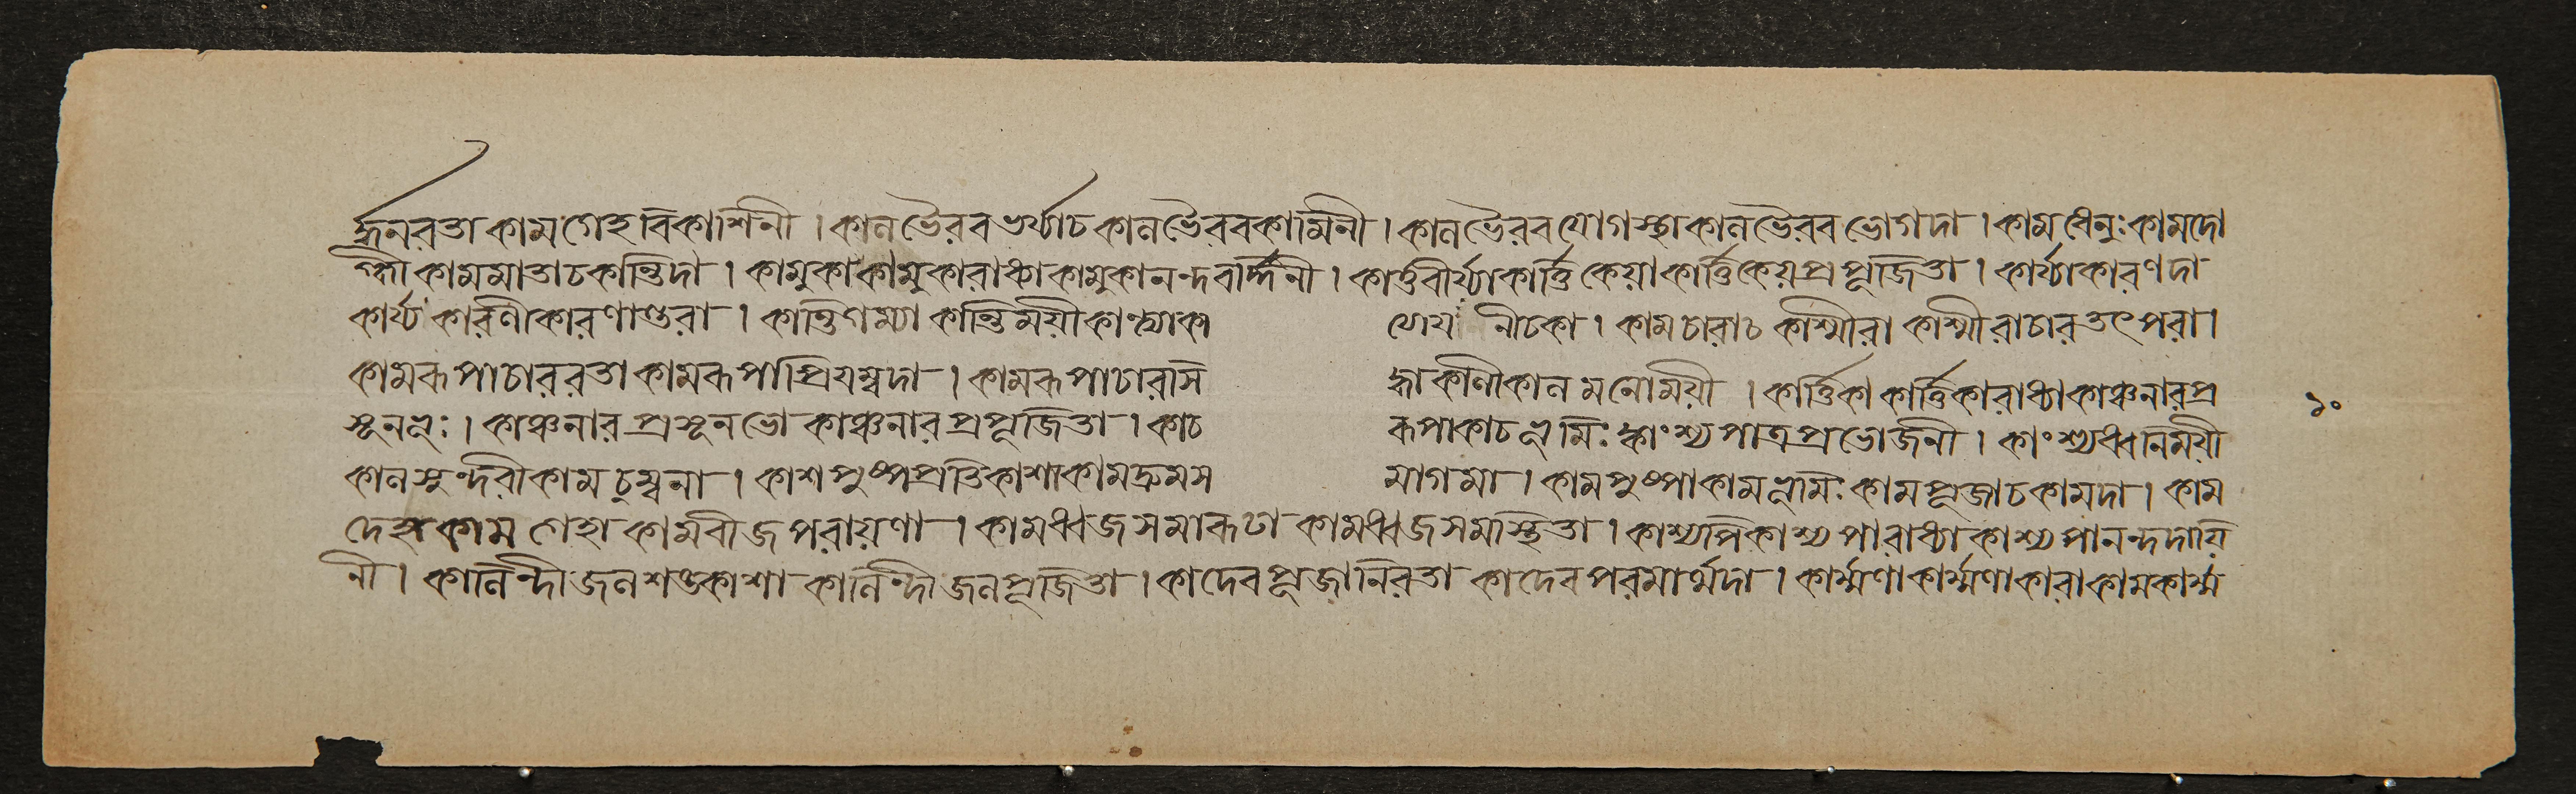 র্জ্জনরতা কামগেহবিকাশিনী । কালভৈরবভার্য্যাচ কালভৈরবকামিনী । কালভৈরবযোগস্থা কালভৈরবভোগদা । কামধেনুঃ কামদো
গ্ধ্রী কামমাতাচ কান্তিদা । কামুকা কামুকারাধ্যা কামুকানন্দবর্দ্ধিনী । কার্ত্তবীর্য্যা কার্ত্তিকেয়া কার্ত্তিকেয়প্রপূজিতা । কার্য্যা কারণদা
কার্য্যকারিণী কারণান্তরা । কান্তিগম্যা কান্তিময়ী কাত্যা কা ত্যায়নীচ কা । কামচারাচ কাশ্মীরা কাশ্মীরাচারতৎপরা ।
কামরূপাচাররতা কামরূপা প্রিয়ম্বদা । কামরূপাচারসি দ্ধা কালী কালমনোময়ী । কার্ত্তিকী কার্ত্তিকারাধ্যা কাঞ্চনারপ্র
সূনভূঃ । কাঞ্চনারপ্রসূনভা কাঞ্চনারপ্রপূজিতা । কাচ রূপা কাচভূমিঃ কাংশ্যপাত্রপ্রভোজিনী । কাংশ্যধ্বনিময়ী
কালসুন্দরী কামচুম্বনা । কাশপুষ্পপ্রতিকাশা কামদ্রুমস মাগমা । কামপুষ্পা কামভূমিঃ কামপূজাচ কামদা । কাম
দেহা কামগেহা কামবীজপরায়ণা । কামধ্বজসমারূঢা কামধ্বজসমাস্থিতা । কাশ্যপী কাশ্যপারাধ্যা কাশ্যপানন্দদায়ি
নী । কালিন্দীজলশঙ্কাশা কালিন্দীজলপূজিতা । কাদেবপূজানিরতা কাদেবপরমার্থদা । কার্ম্মণা কার্ম্মণাকারা কামকার্ম্ম
১০